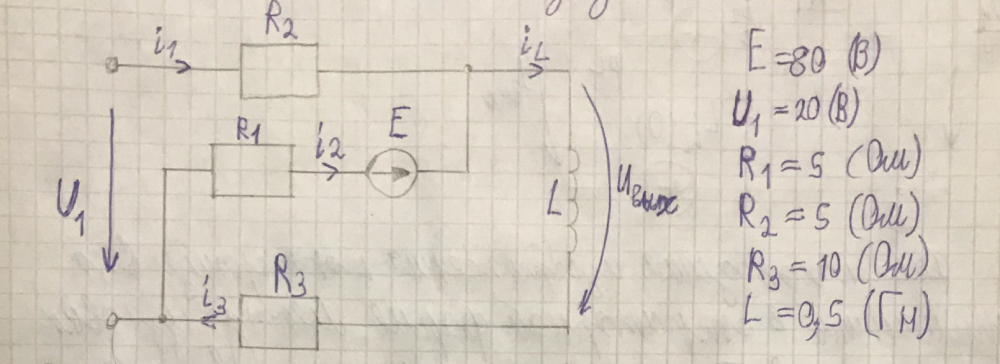 R2
i1
iL
R1
i2
E
U1
L
Uвых
i3
R3
E=80 (В)
U1=20 (В)
R1=5 (Ом)
R2=5 (Ом)
R3=10 (Ом)
L=0,5 (Гн)